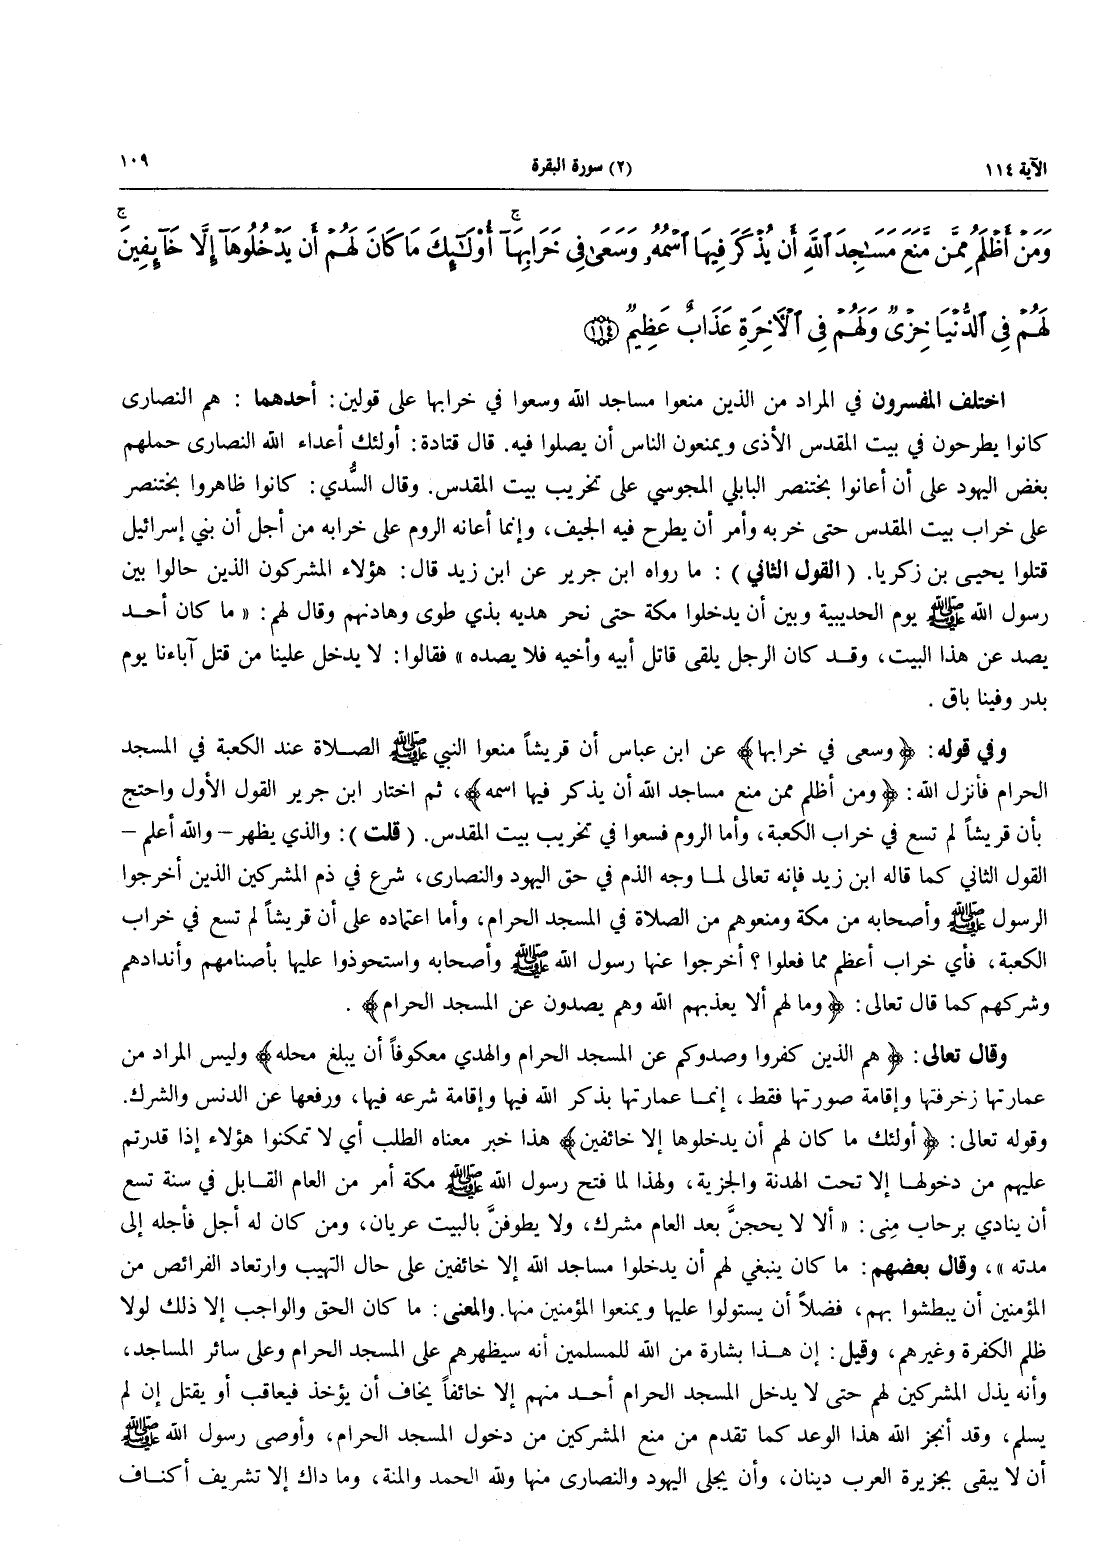 الآية ١١٤ (٢) سورة البقرة ١٠٩
وَمَنْ أَظْلَمُ مِمَّن مَّنَعَ مَسَـٰجِدَ ٱللَّهِ أَن يُذْكَرَ فِيهَا ٱسْمُهُۥ وَسَعَىٰ فِى خَرَابِهَآ ۚ أُو۟لَـٰٓئِكَ مَا كَانَ لَهُمْ أَن يَدْخُلُوهَآ إِلَّا خَآئِفِينَ ۚ
لَهُمْ فِى ٱلدُّنْيَا خِزْىٌ وَلَهُمْ فِى ٱلْـَٔاخِرَةِ عَذَابٌ عَظِيمٌ ﴿١١٤﴾
اختلف المفسرون في المراد من الذين منعوا مساجد الله وسعوا في خرابها على قولين: أحدهما : هم النصارى
كانوا يطرحون في بيت المقدس الأذى ويمنعون الناس أن يصلوا فيه. قال قتادة: أولئك أعداء الله النصارى حملهم
بغض اليهود على أن أعانوا بختنصر البابلي المجوسي على تخريب بيت المقدس. وقال السُّدي: كانوا ظاهروا بختنصر
على خراب بيت المقدس حتى خربه وأمر أن يطرح فيه الجيف، وإنما أعانه الروم على خرابه من أجل أن بني إسرائيل
قتلوا يحيى بن زكريا. ( القول الثاني ) : ما رواه ابن جرير عن ابن زيد قال: هؤلاء المشركون الذين حالوا بين
رسول الله ﷺ يوم الحديبية وبين أن يدخلوا مكة حتى نحر هديه بذي طوى وهادنهم وقال لهم: « ما كان أحد
يصد عن هذا البيت، وقد كان الرجل يلقى قاتل أبيه وأخيه فلا يصده » فقالوا: لا يدخل علينا من قتل آباءنا يوم
بدر وفينا باق .
وفي قوله: ﴿ وسعى في خرابها﴾ عن ابن عباس أن قريشاً منعوا النبي ﷺ الصلاة عند الكعبة في المسجد
الحرام فأنزل الله: ﴿ومن أظلم ممن منع مساجد الله أن يذكر فيها اسمه﴾، ثم اختار ابن جرير القول الأول واحتج
بأن قريشاً لم تسع في خراب الكعبة، وأما الروم فسعوا في تخريب بيت المقدس. ( قلت ): والذي يظهر – والله أعلم –
القول الثاني كما قاله ابن زيد فإنه تعالى لما وجه الذم في حق اليهود والنصارى، شرع في ذم المشركين الذين أخرجوا
الرسول ﷺ وأصحابه من مكة ومنعوهم من الصلاة في المسجد الحرام، وأما اعتماده على أن قريشاً لم تسع في خراب
الكعبة، فأي خراب أعظم مما فعلوا؟ أخرجوا عنها رسول الله ﷺ وأصحابه واستحوذوا عليها بأصنامهم وأندادهم
وشركهم كما قال تعالى: ﴿ وما لهم ألا يعذبهم الله وهم يصدون عن المسجد الحرام﴾ .
وقال تعالى: ﴿ هم الذين كفروا وصدوكم عن المسجد الحرام والهدي معكوفاً أن يبلغ محله﴾ وليس المراد من
عمارتها زخرفتها وإقامة صورتها فقط، إنما عمارتها بذكر الله فيها وإقامة شرعه فيها، ورفعها عن الدنس والشرك.
وقوله تعالى: ﴿ أولئك ما كان لهم أن يدخلوها إلا خائفين﴾ هذا خبر معناه الطلب أي لا تمكنوا هؤلاء إذا قدرتم
عليهم من دخولها إلا تحت الهدنة والجزية، ولهذا لما فتح رسول الله ﷺ مكة أمر من العام القابل في سنة تسع
أن ينادي برحاب مِنى: « ألا لا يحجنَّ بعد العام مشرك، ولا يطوفنَّ بالبيت عريان، ومن كان له أجل فأجله إلى
مدته »، وقال بعضهم: ما كان ينبغي لهم أن يدخلوا مساجد الله إلا خائفين على حال التهيب وارتعاد الفرائص من
المؤمنين أن يبطشوا بهم، فضلاً أن يستولوا عليها ويمنعوا المؤمنين منها. والمعنى: ما كان الحق والواجب إلا ذلك لولا
ظلم الكفرة وغيرهم، وقيل: إن هذا بشارة من الله للمسلمين أنه سيظهرهم على المسجد الحرام وعلى سائر المساجد،
وأنه يذل المشركين لهم حتى لا يدخل المسجد الحرام أحد منهم إلا خائفاً يخاف أن يؤخذ فيعاقب أو يقتل إن لم
يسلم، وقد أنجز الله هذا الوعد كما تقدم من منع المشركين من دخول المسجد الحرام، وأوصى رسول الله ﷺ
أن لا يبقى بجزيرة العرب دينان، وأن يجلى اليهود والنصارى منها ولله الحمد والمنة، وما ذاك إلا تشريف أكناف